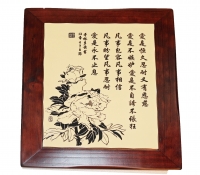 爱是恒久忍耐又有恩慈
爱是不嫉妒爱是不自夸不张狂
凡事包容凡事相信
凡事盼望凡事忍耐
爱是永不止息